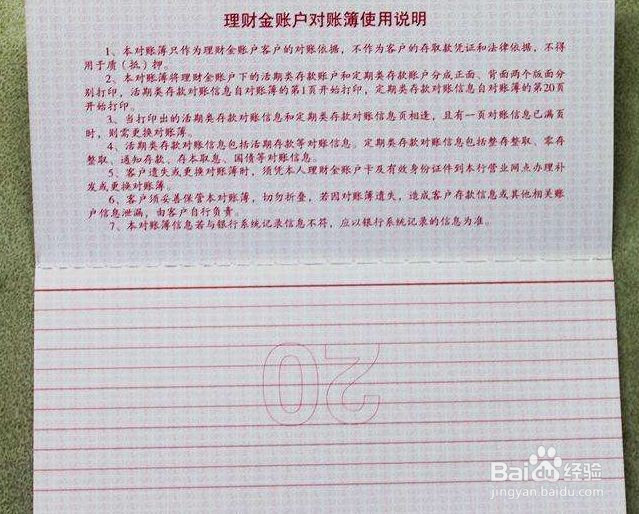 理财金账户对账簿使用说明
1、本对账簿只作为理财金账户客户的对账依据，不作为客户的存取款凭证和法律依据，不得
用于质（抵）押。
2、本对账簿将理财金账户下的活期类存款账户和定期类存款账户分成正面、背面两个版面分
别打印，活期类存款对账信息自对账簿的第1页开始打印，定期类存款对账信息自对账簿的第20页
开始打印。
3、当打印出的活期类存款对账信息和定期类存款对账信息页相逢，且有一页对账信息已满页
时，则需更换对账簿。
4、活期类存款对账信息包括活期存款等对账信息。定期类存款对账信息包括整存整取、零存
整取、通知存款、存本取息、国债等对账信息。
5、客户遗失或更换对账簿时，须凭本人理财金账户卡及有效身份证件到本行营业网点办理补
发或更换对账簿。
6、客户须妥善保管本对账簿，切勿折叠，若因对账簿遗失，造成客户存款信息或其他相关账
户信息泄漏，由客户自行负责。
7、本对账簿信息若与银行系统记录信息不符，应以银行系统记录的信息为准。
20
Baidu经验
jingyan.baidu.com